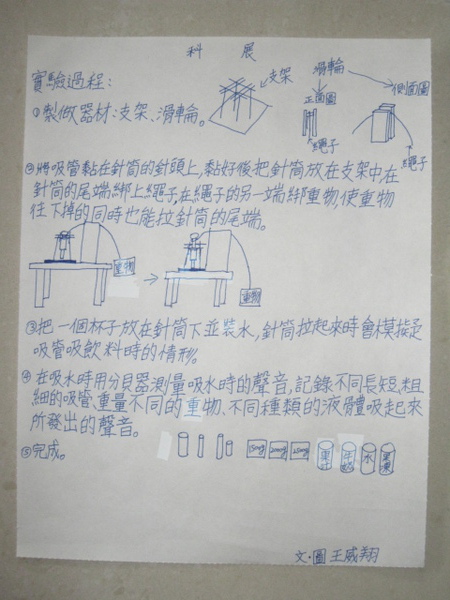 科 展
實驗過程：
①製做器材：支架、滑輪。
支架
滑輪
正面圖
側面圖
繩子
繩子
②將吸管黏在針筒的針頭上，黏好後把針筒放在支架中，在
針筒的尾端綁上繩子，在繩子的另一端綁重物，使重物
往下掉的同時也能拉針筒的尾端。
重物
重物
③把一個杯子放在針筒下並裝水，針筒拉起來時會模擬是
吸管吸飲料時的情形。
④在吸水時用分貝器測量吸水時的聲音，記錄不同長短、粗
細的吸管、重量不同的重物、不同種類的液體吸起來
所發出的聲音。
⑤完成。
果汁
牛奶
水
果凍
文·圖 王威翔